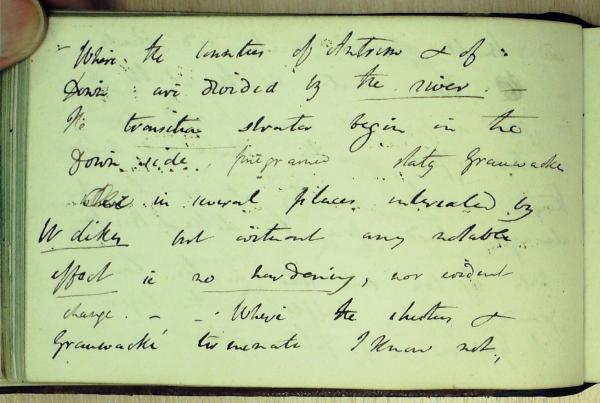 Where the counties of Antrim & of
Down are divided by the river. —
The transition strata begin in the
Down side, fine grained slaty Grauwacke
in several places intersected by
W dikes but without any notable
effect ie no hardening, nor evident
change. — — Where the &
Grauwacké terminate I know not,